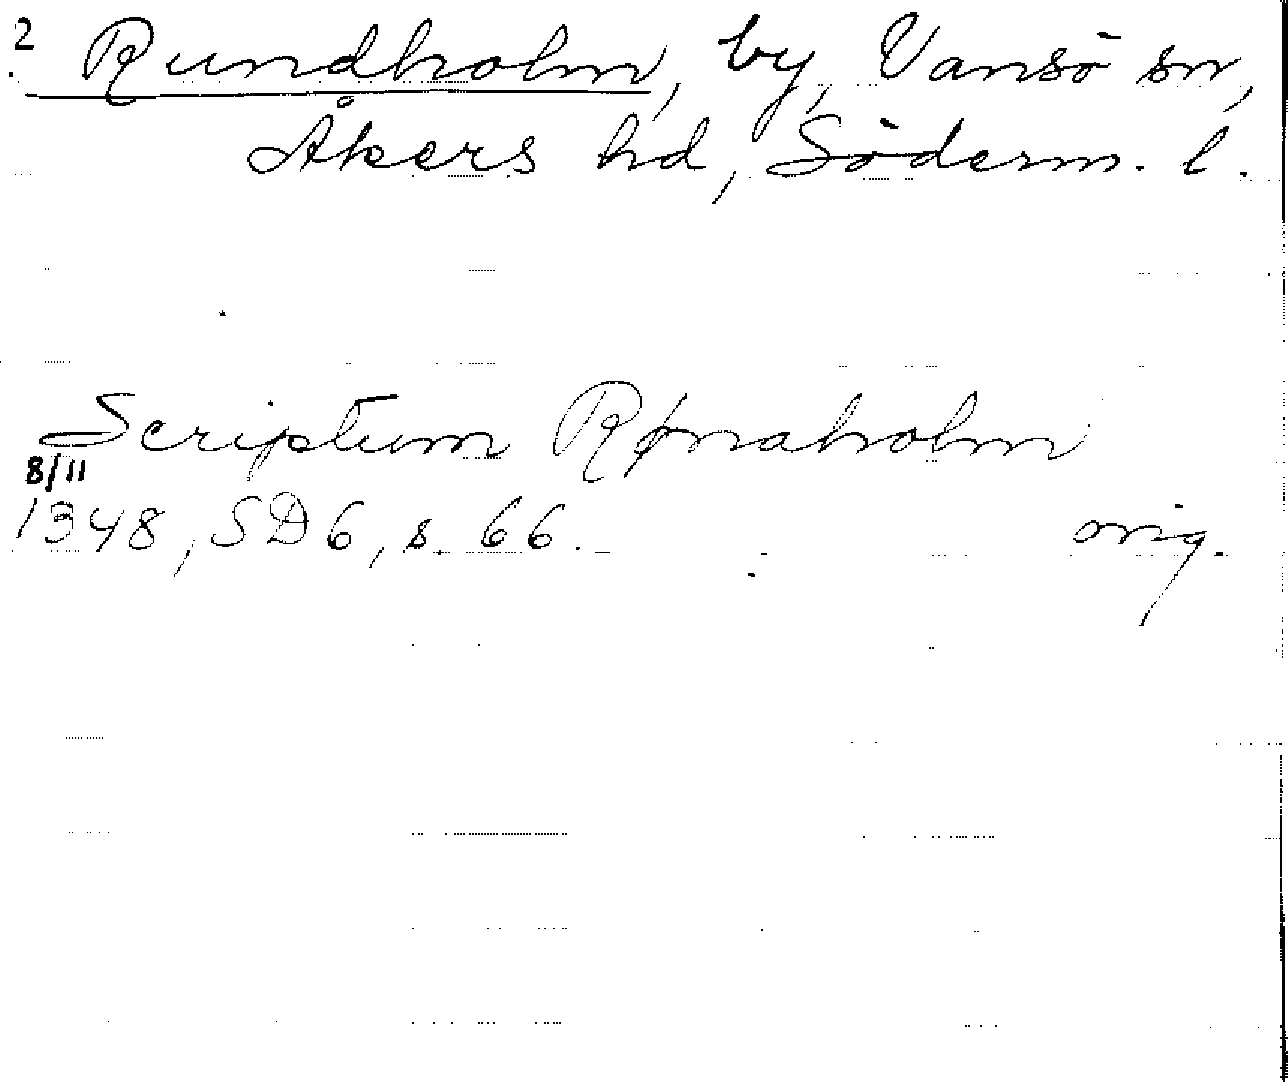 2 Rundholm, by, Vansö sn,
Åkers hd, Söderm. l.
Scriptum Rønaholm
8/11
1348, SD 6, s. 66. orig.